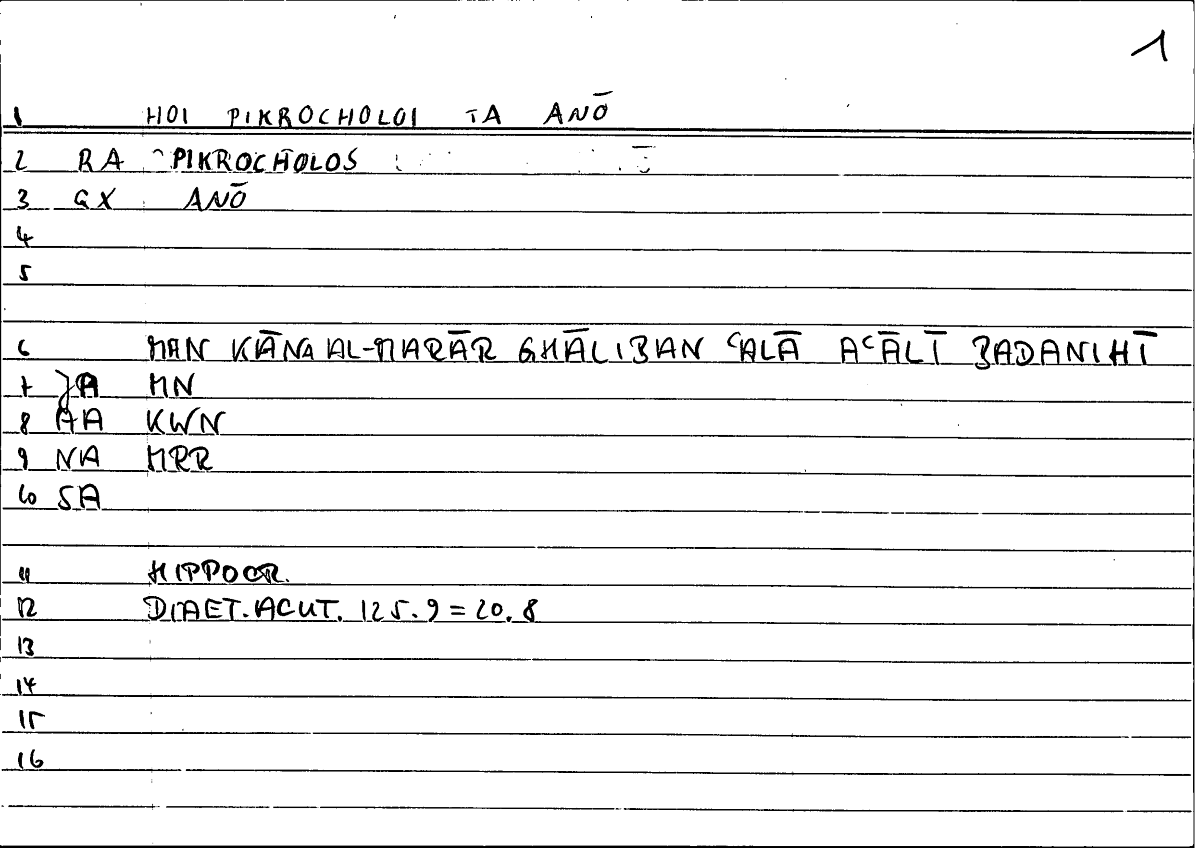 1
1 HOI PIKROCHOLOI TA ANŌ
2 RA PIKROCHOLOS
3 GX ANŌ
4
5
6 MAN KĀNA AL-MARĀR GHĀLIBAN ʿALĀ AʿĀLĪ BADANIHĪ
7 MN
8 AA KWN
9 NA MRR
10 SA
11 HIPPOCR.
12 DIAET. ACUT. 125.9 = 20.8
13
14
15
16